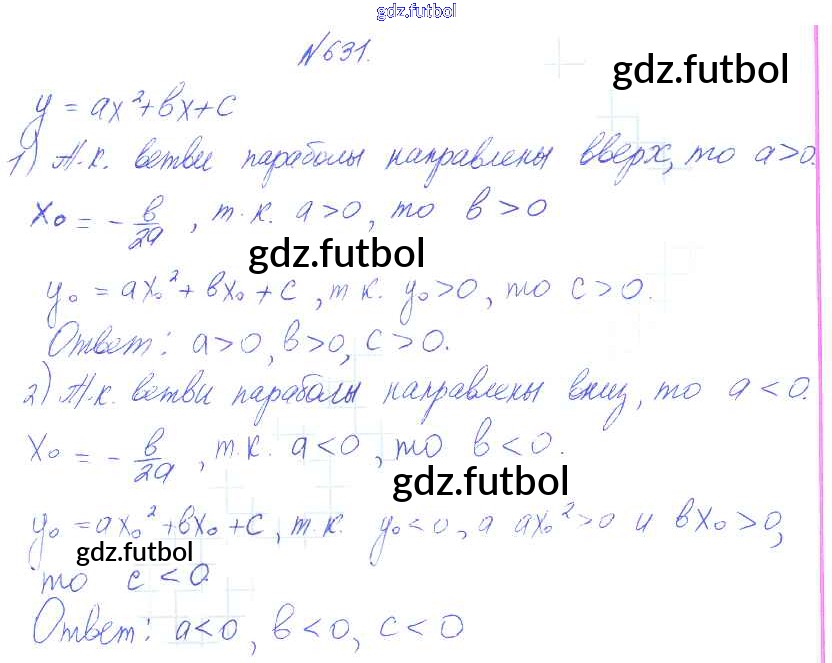 gdz.futbol
№631.
gdz.futbol
y = ax²+bx+c
1) Т.к. ветви параболы направлены вверх, то a>0.
x₀ = - b/2a , т.к. a>0, то b>0
gdz.futbol
y₀ = ax₀²+bx₀+c , т.к. y₀>0, то c>0.
Ответ: a>0, b>0, c>0.
2) Т.к. ветви параболы направлены вниз, то a<0.
x₀ = - b/2a , т.к. a<0, то b<0.
gdz.futbol
y₀ =ax₀²+bx₀+c, т.к. y₀<0, а ax₀²>0 и bx₀>0,
gdz.futbol
то c<0.
Ответ: a<0, b<0, c<0